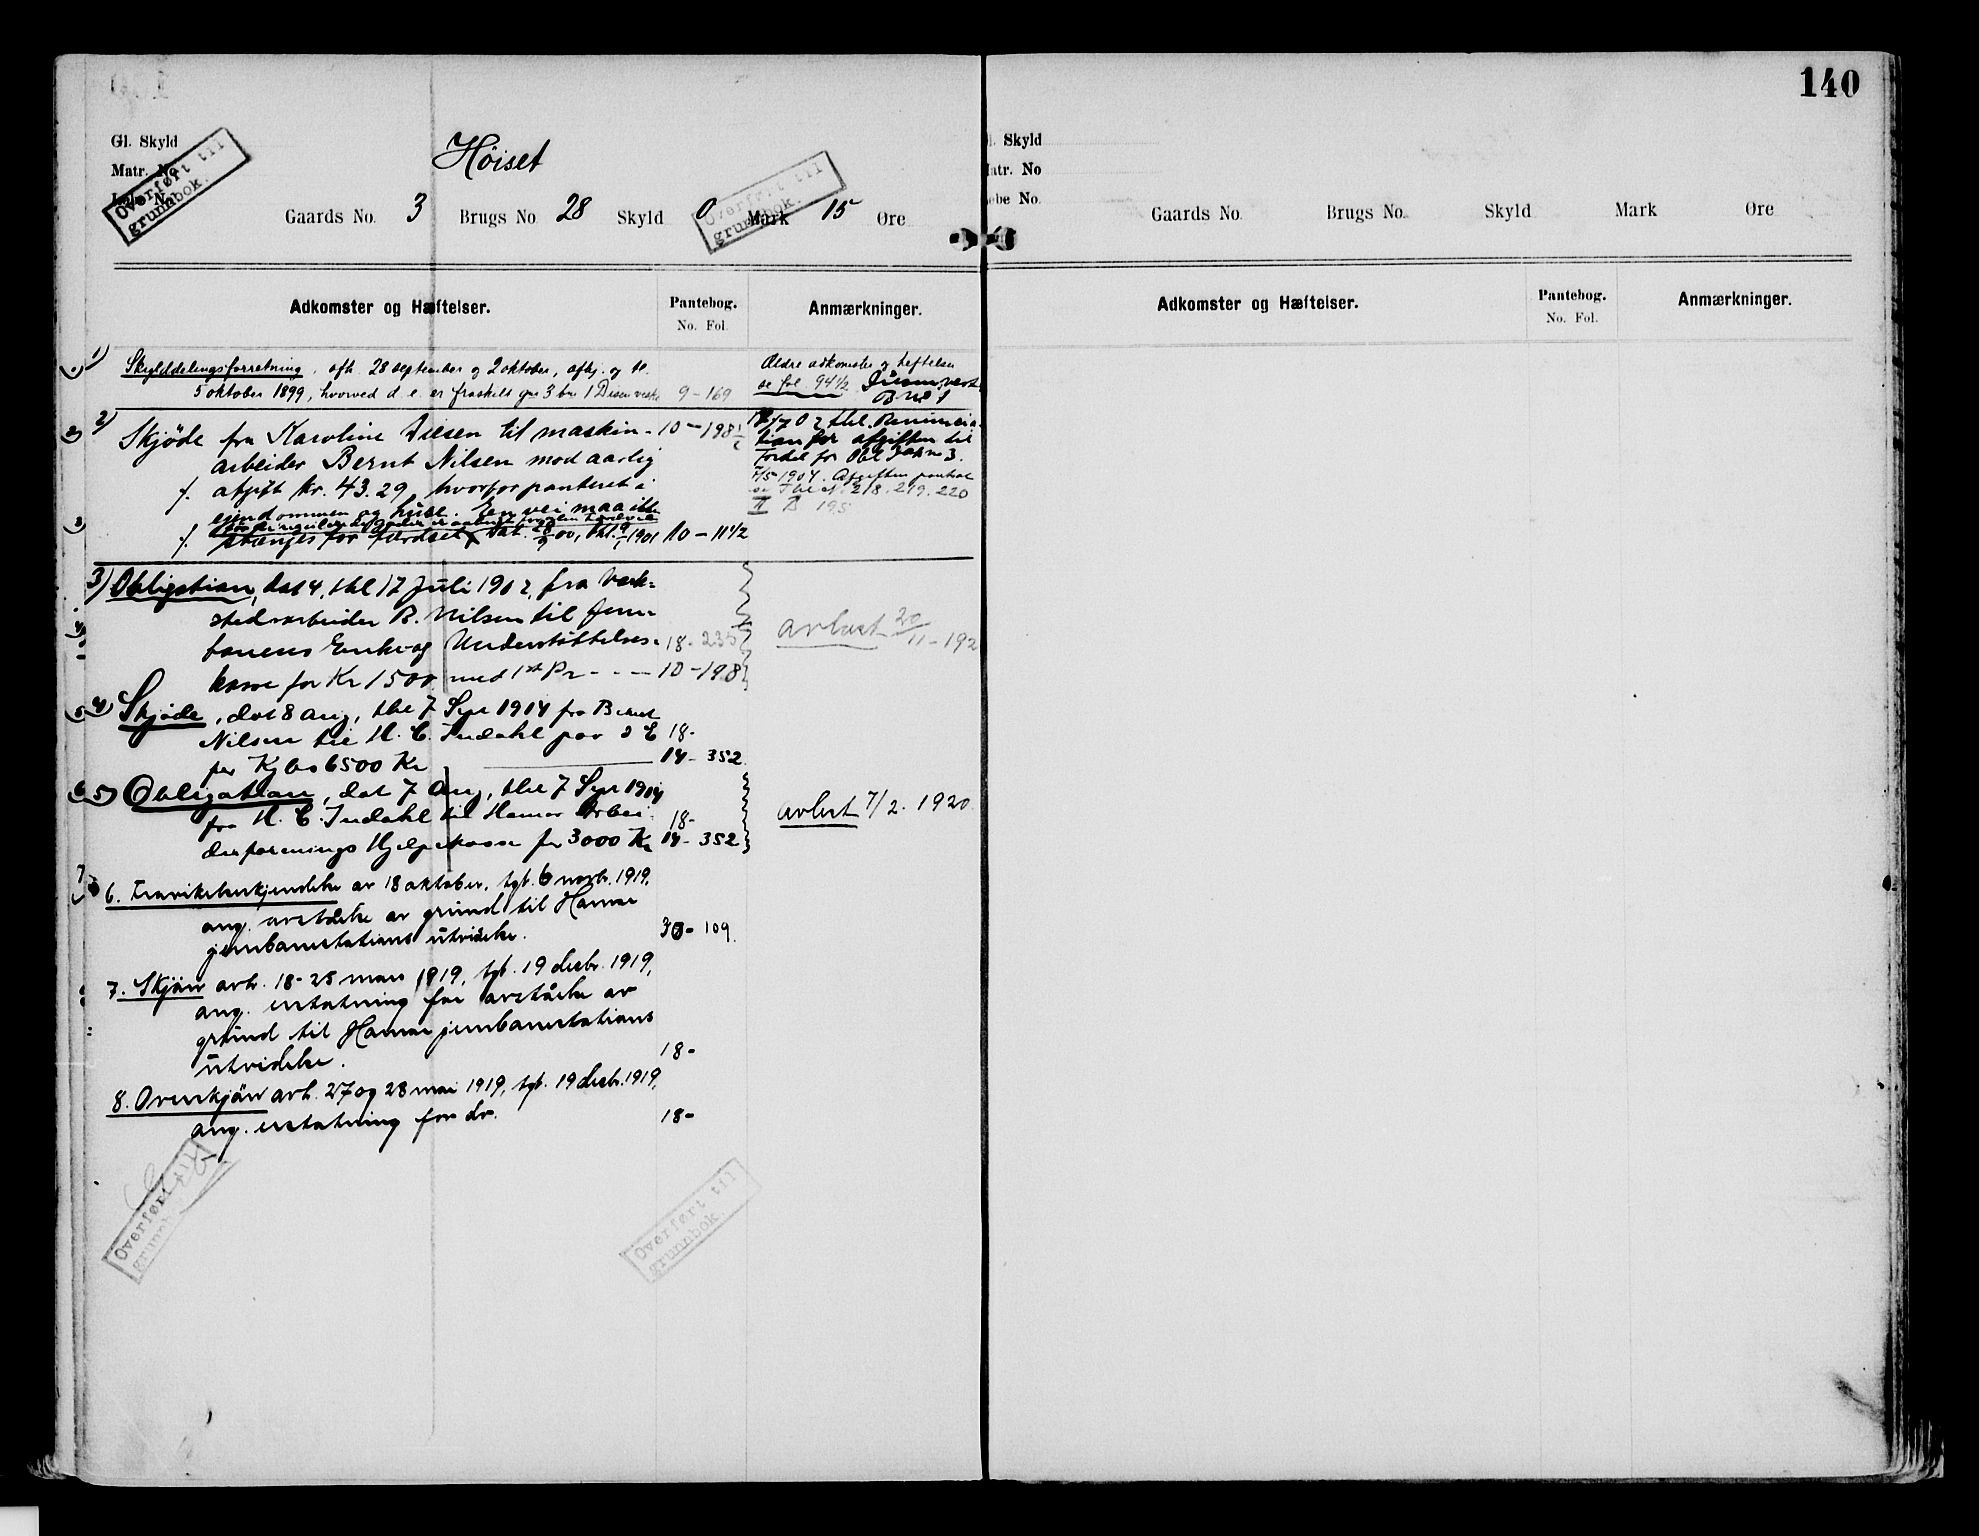 140
Gl. Skyld
Matr. No
Løbe No
Overført til
grunnbok.
Høiset
Gaards No. 3 Brugs No 28 Skyld 0 Mark 15 Øre
Overført til
grunnbok.
Adkomster og Hæftelser.
Pantebog.
No. Fol.
Anmærkninger.
1) Skylddelingsforretning, afh. 28 september og 2 oktober, afhj. og tl.
5 oktober 1899, hvorved d. e. er fraskilt gnr 3 bnr 1 Disen vestre 9-169
Ældre adkomster og heftelser
se fol. 94½ Disen vest.
Bno 1
2) Skjøde fra Karoline Disen til maskin- 10-198½
arbeider Bernt Nilsen mod aarlig
afgift kr. 43.29, hvorfor panteret i
eiendommen og huse. En vei maa ikke
stænges for færdsel, Dat. 28/9 00, thl. 9/1 1901 10-11½
tion for afgiften til
Fordel for Obl
7/5 1904. Afgiften pantsat
se Thl No 218. 219. 220
II B 195
3) Obligation, dat 4, thl 17 Juli 1902, fra Værk-
stedsarbeider B. Nilsen til Jern-
banens Enke- og Understøttelses- 18-235
kasse for Kr 1500 med 1st Pr - - - 10-198
avlæst 20/11-192
4) Skjøde, dat 8 Aug, thl 7 Sep 1914 fra Bernt
Nilsen til H. C. Indahl paa d E 18-
for Kjøbes 6500 Kr 14-352
5) Obligation, dat 7 Aug, thl 7 Sep 1914
fra H. C. Indahl til Hamar Arbei- 18-
derforenings Hjælpekasse for 3000 Kr 14-352
avlæst 7/2. 1920
6. av 18 oktober, tgl. 6 novbr. 1919,
ang. avståelse av grund til Hamar
jernbanestations utvidelse. 30-109.
7. Skjøn avh. 18-25 mars 1919, tgl. 19 decbr. 1919,
ang. erstatning for avståelse av
grund til Hamar jernbanestations
utvidelse. 18-
8. Overskjøn avh. 27 og 28 mai 1919, tgl. 19 decbr. 1919,
ang. erstatning for do. 18-
Overført til
grunnbok.
Overført til
grunnbok.
Gl. Skyld
Matr. No
Løbe No.
Gaards No. Brugs No. Skyld Mark Øre
Adkomster og Hæftelser.
Pantebog.
No. Fol.
Anmærkninger.